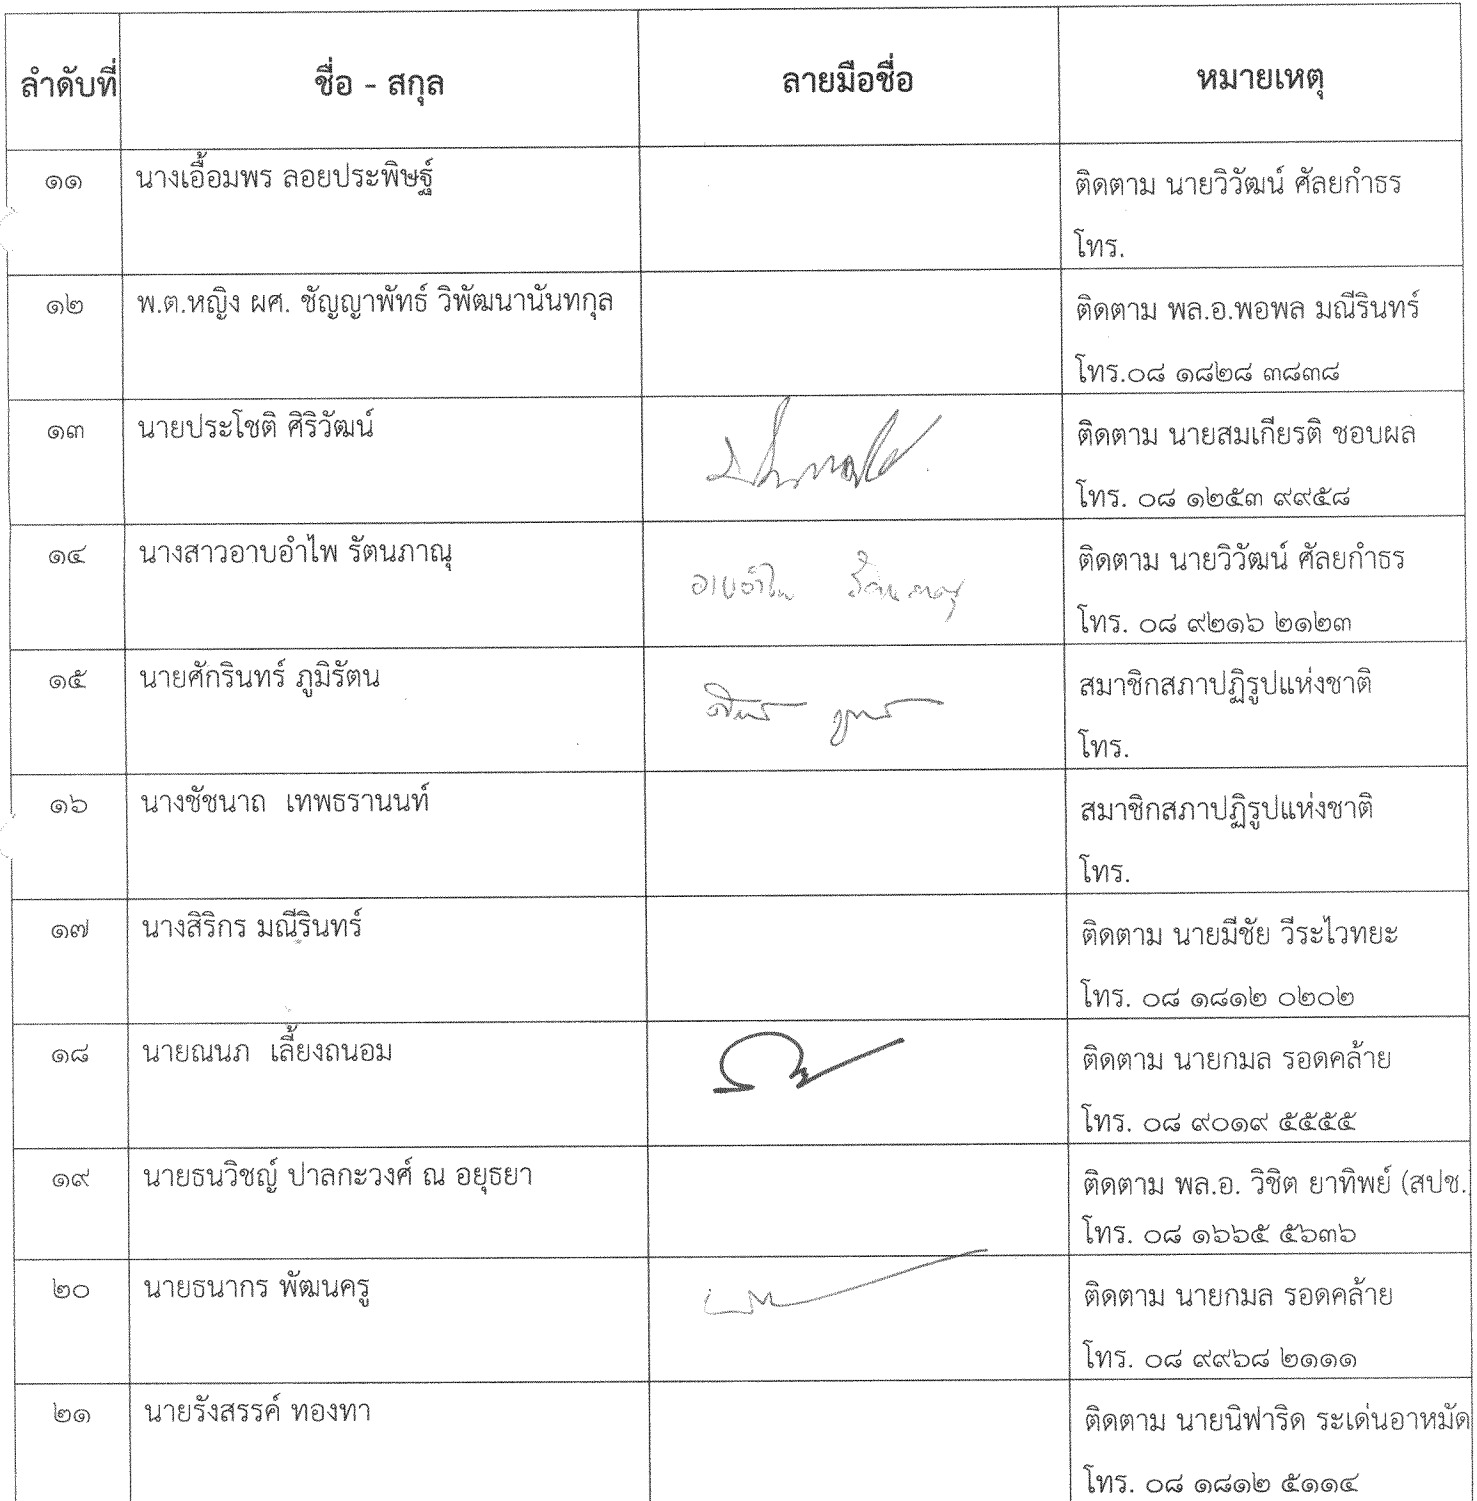 ลำดับที่ ชื่อ - สกุล ลายมือชื่อ หมายเหตุ
๑๑ นางเอื้อมพร ลอยประพิษฐ์ ติดตาม นายวิวัฒน์ ศัลยกำธร
โทร.
๑๒ พ.ต.หญิง ผศ. ชัญญาพัทธ์ วิพัฒนานันทกุล ติดตาม พล.อ.พอพล มณีรินทร์
โทร.๐๘ ๑๘๒๘ ๓๘๓๘
๑๓ นายประโชติ ศิริวัฒน์ ติดตาม นายสมเกียรติ ชอบผล
โทร. ๐๘ ๑๒๕๓ ๙๙๕๘
๑๔ นางสาวอาบอำไพ รัตนภาณุ อาบอำไพ รัตนภาณุ ติดตาม นายวิวัฒน์ ศัลยกำธร
โทร. ๐๘ ๙๒๑๖ ๒๑๒๓
๑๕ นายศักรินทร์ ภูมิรัตน สมาชิกสภาปฏิรูปแห่งชาติ
โทร.
๑๖ นางชัชนาถ เทพธรานนท์ สมาชิกสภาปฏิรูปแห่งชาติ
โทร.
๑๗ นางสิริกร มณีรินทร์ ติดตาม นายมีชัย วีระไวทยะ
โทร. ๐๘ ๑๘๑๒ ๐๒๐๒
๑๘ นายณนภ เลี้ยงถนอม ติดตาม นายกมล รอดคล้าย
โทร. ๐๘ ๙๐๑๙ ๕๕๕๕
๑๙ นายธนวิชญ์ ปาลกะวงศ์ ณ อยุธยา ติดตาม พล.อ. วิชิต ยาทิพย์ (สปช.
โทร. ๐๘ ๑๖๖๕ ๕๖๓๖
๒๐ นายธนากร พัฒนครู ติดตาม นายกมล รอดคล้าย
โทร. ๐๘ ๙๙๖๘ ๒๑๑๑
๒๑ นายรังสรรค์ ทองทา ติดตาม นายนิฟาริด ระเด่นอาหมัด
โทร. ๐๘ ๑๘๑๒ ๕๑๑๔